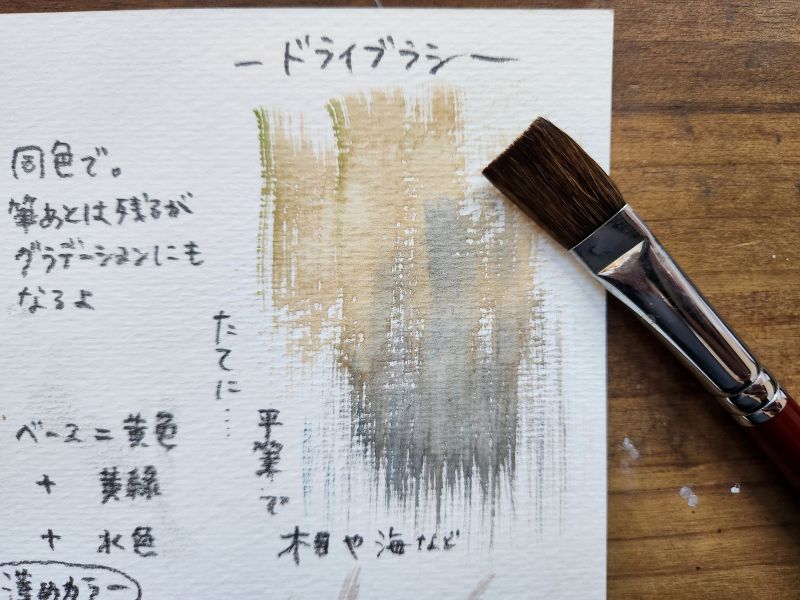 ードライブラシー
同色で。
筆あとは残るが
グラデーションにも
なるよ
たてに…
平筆で
木目や海など
ベース=黄色
+ 黄緑
+ 水色
薄めカラー